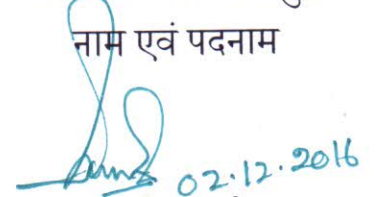 नाम एवं पदनाम
02.12.2016